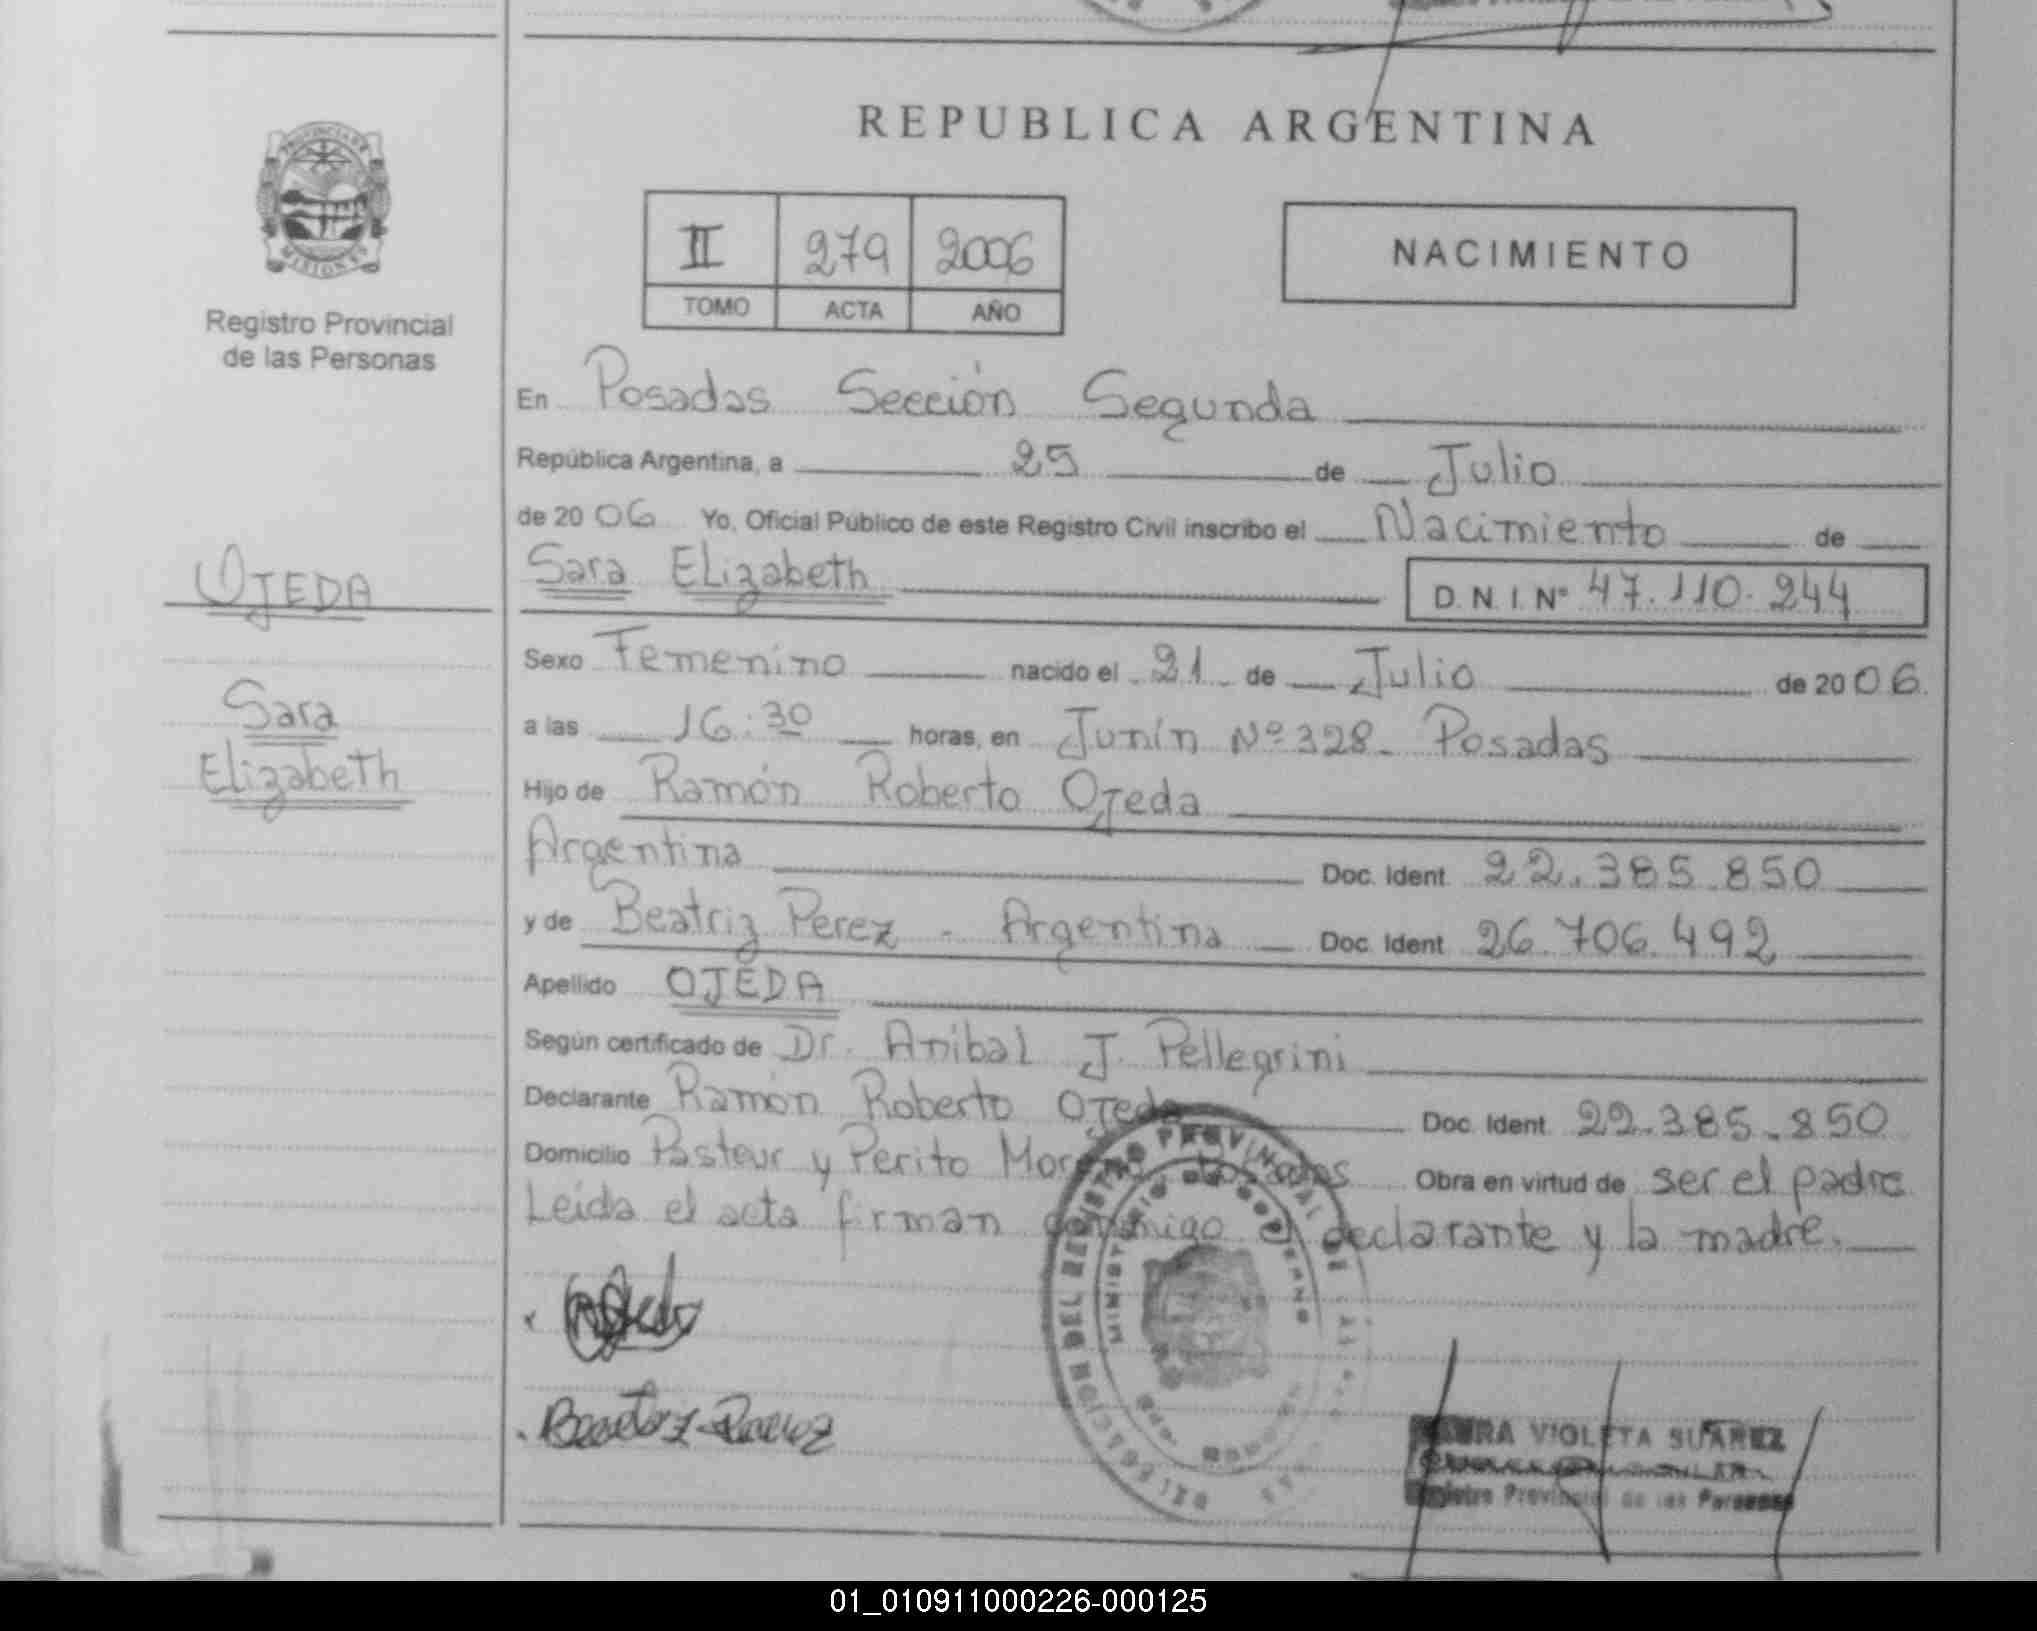 REPUBLICA ARGENTINA
PROVINCIA DE
MISIONES
Registro Provincial
de las Personas
II 279 2006
TOMO ACTA AÑO
NACIMIENTO
En Posadas Sección Segunda
República Argentina, a 25 de Julio
de 2006 Yo, Oficial Público de este Registro Civil inscribo el Nacimiento de
Sara Elizabeth D.N.I. Nº 47.110.244
OJEDA
Sara
Elizabeth
Sexo Femenino nacido el 21 de Julio de 2006.
a las 16:30 horas, en Junín Nº 328. Posadas
Hijo de Ramón Roberto Ojeda
Argentina Doc. Ident. 22.385.850
y de Beatriz Perez - Argentina Doc. Ident. 26.706.492
Apellido OJEDA
Según certificado de Dr. Anibal J. Pellegrini
Declarante Ramón Roberto Ojeda Doc. Ident. 22.385.850
Domicilio Pasteur y Perito Moreno Posadas Obra en virtud de ser el padre
Leída el acta firman conmigo el declarante y la madre.
Beatriz Perez
DEL REGISTRO PROVINCIAL DE
MINISTERIO DE GOBIERNO
VIOLETA SUAREZ
Registro Provincial de las Personas
01_010911000226-000125